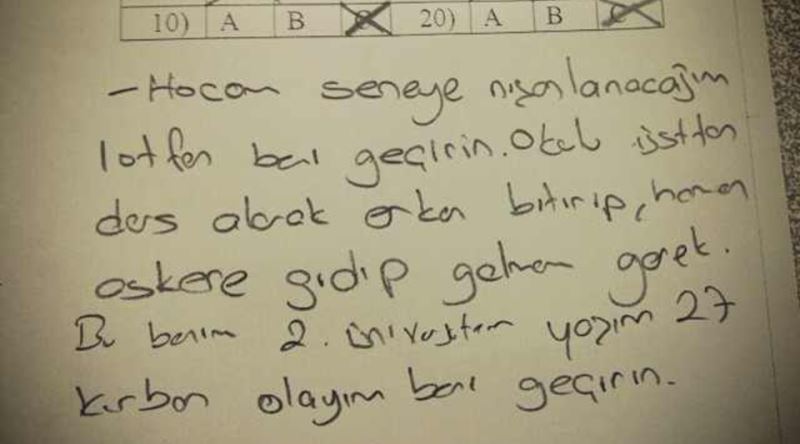 10) A B C 20) A B C
- Hocam seneye nişanlanacağım
lotfen beni geçirin. Okulu üstten
ders alarak erken bitirip, hemen
askere gidip gelmem gerek.
Bu benim 2. üniversitem yaşım 27
kurban olayım beni geçirin.